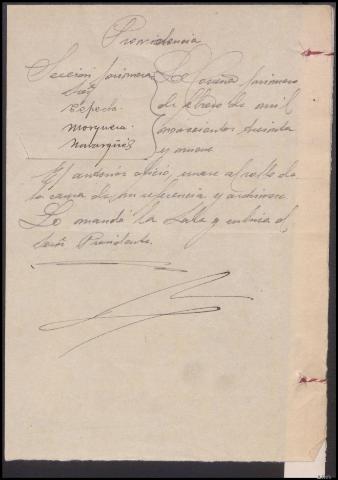 Providencia
Sección primera
Srs
Cepeda
Mosquera
Navarguís
La Coruña primero
de Febrero de mil
novecientos treinta
y nueve
El anterior oficio, unase al rollo de
la causa de su referencia y archivese
Lo mandó la Sala y rubrica el
Señor Presidente.